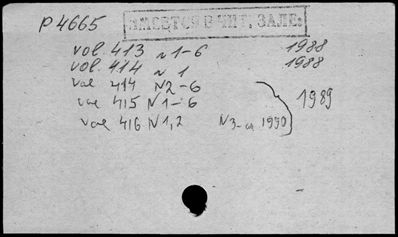 P4665
ИМЕЕТСЯ В ЧИТ. ЗАЛЕ:
vol. 413 N1-6 1988
vol. 414 N 1 1988
vol 414 N2-6
vol 415 N1-6 1989
vol 416 N1,2 N3- 1990